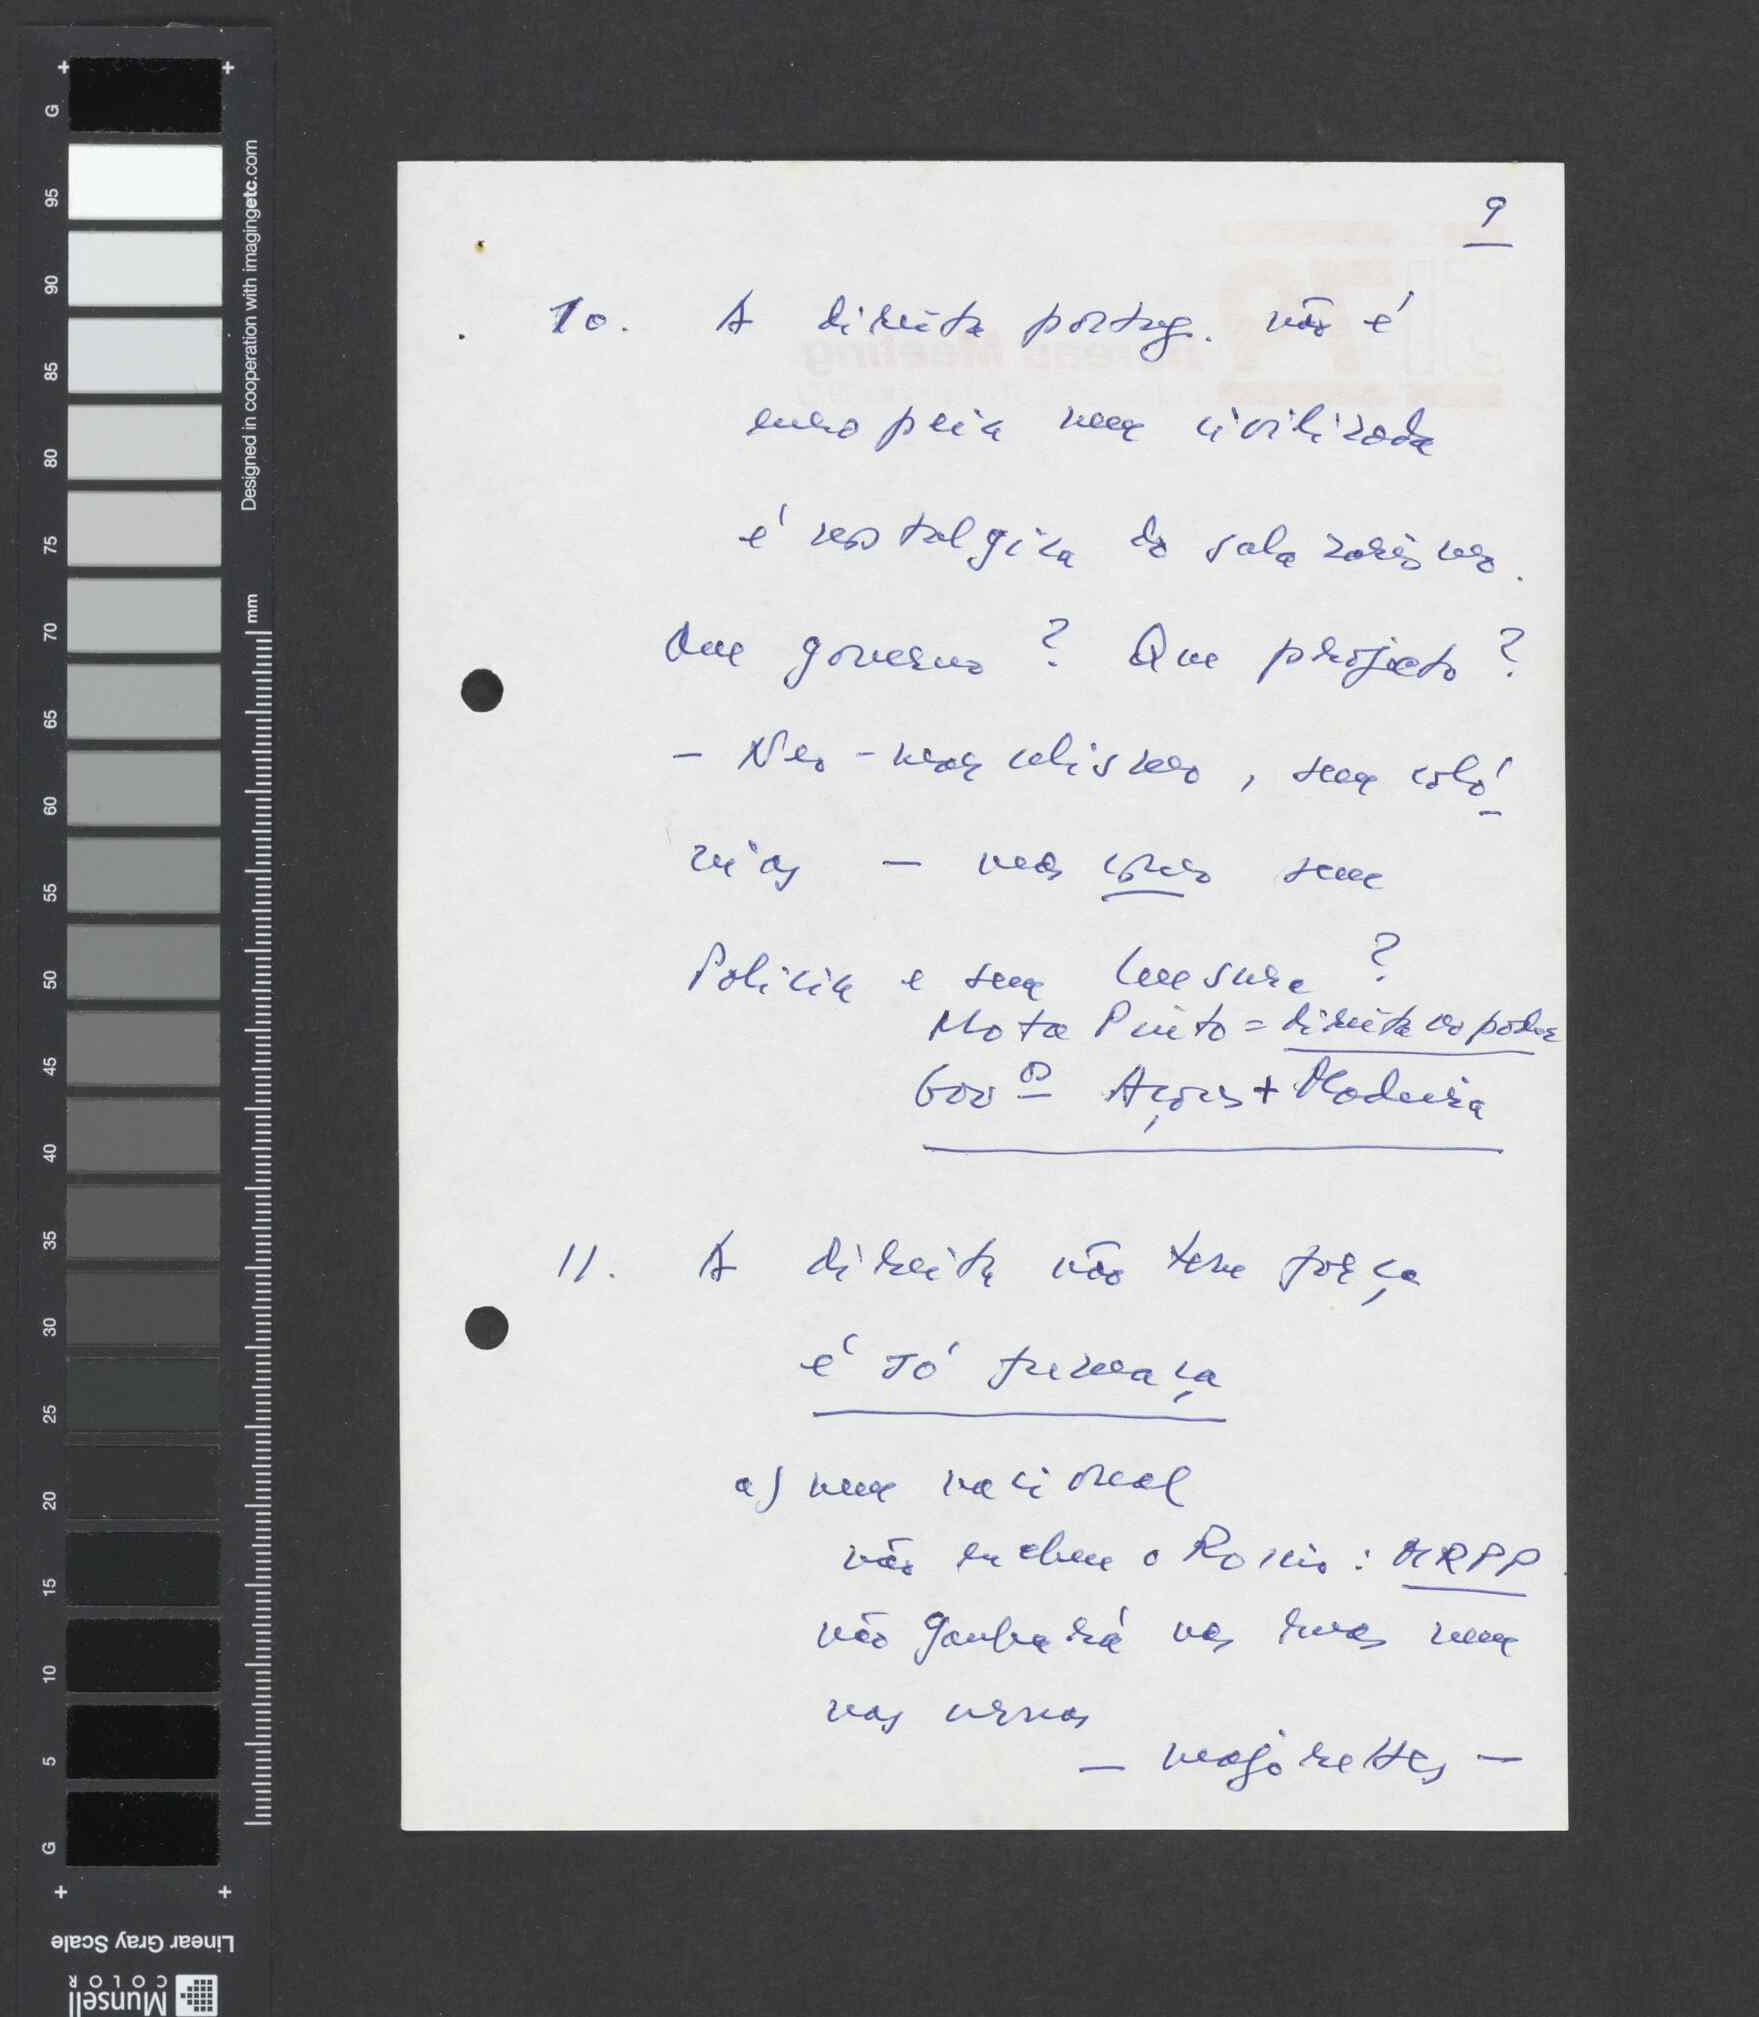 9
10. A direita portug. não é
europeia nem civilizada
é nostalgica do salazarismo.
Que governo? Que projecto?
- Neo-marcelismo, sem coló-
nias — mas como sem
Policia e sem Censura?
Mota Pinto = direita no poder
Gov os Açores + Madeira
11. A direita não tem força
é só fumaça
a) nem nacional
não enchem o Rossio: MRPP
não ganhará nas ruas nem
nas urnas
— majorettes —
G
95
90
85
80
75
70
65
60
55
50
45
40
35
30
25
20
15
10
5
G
Designed in cooperation with imagingetc.com
mm
Linear Gray Scale
Munsell
COLOR